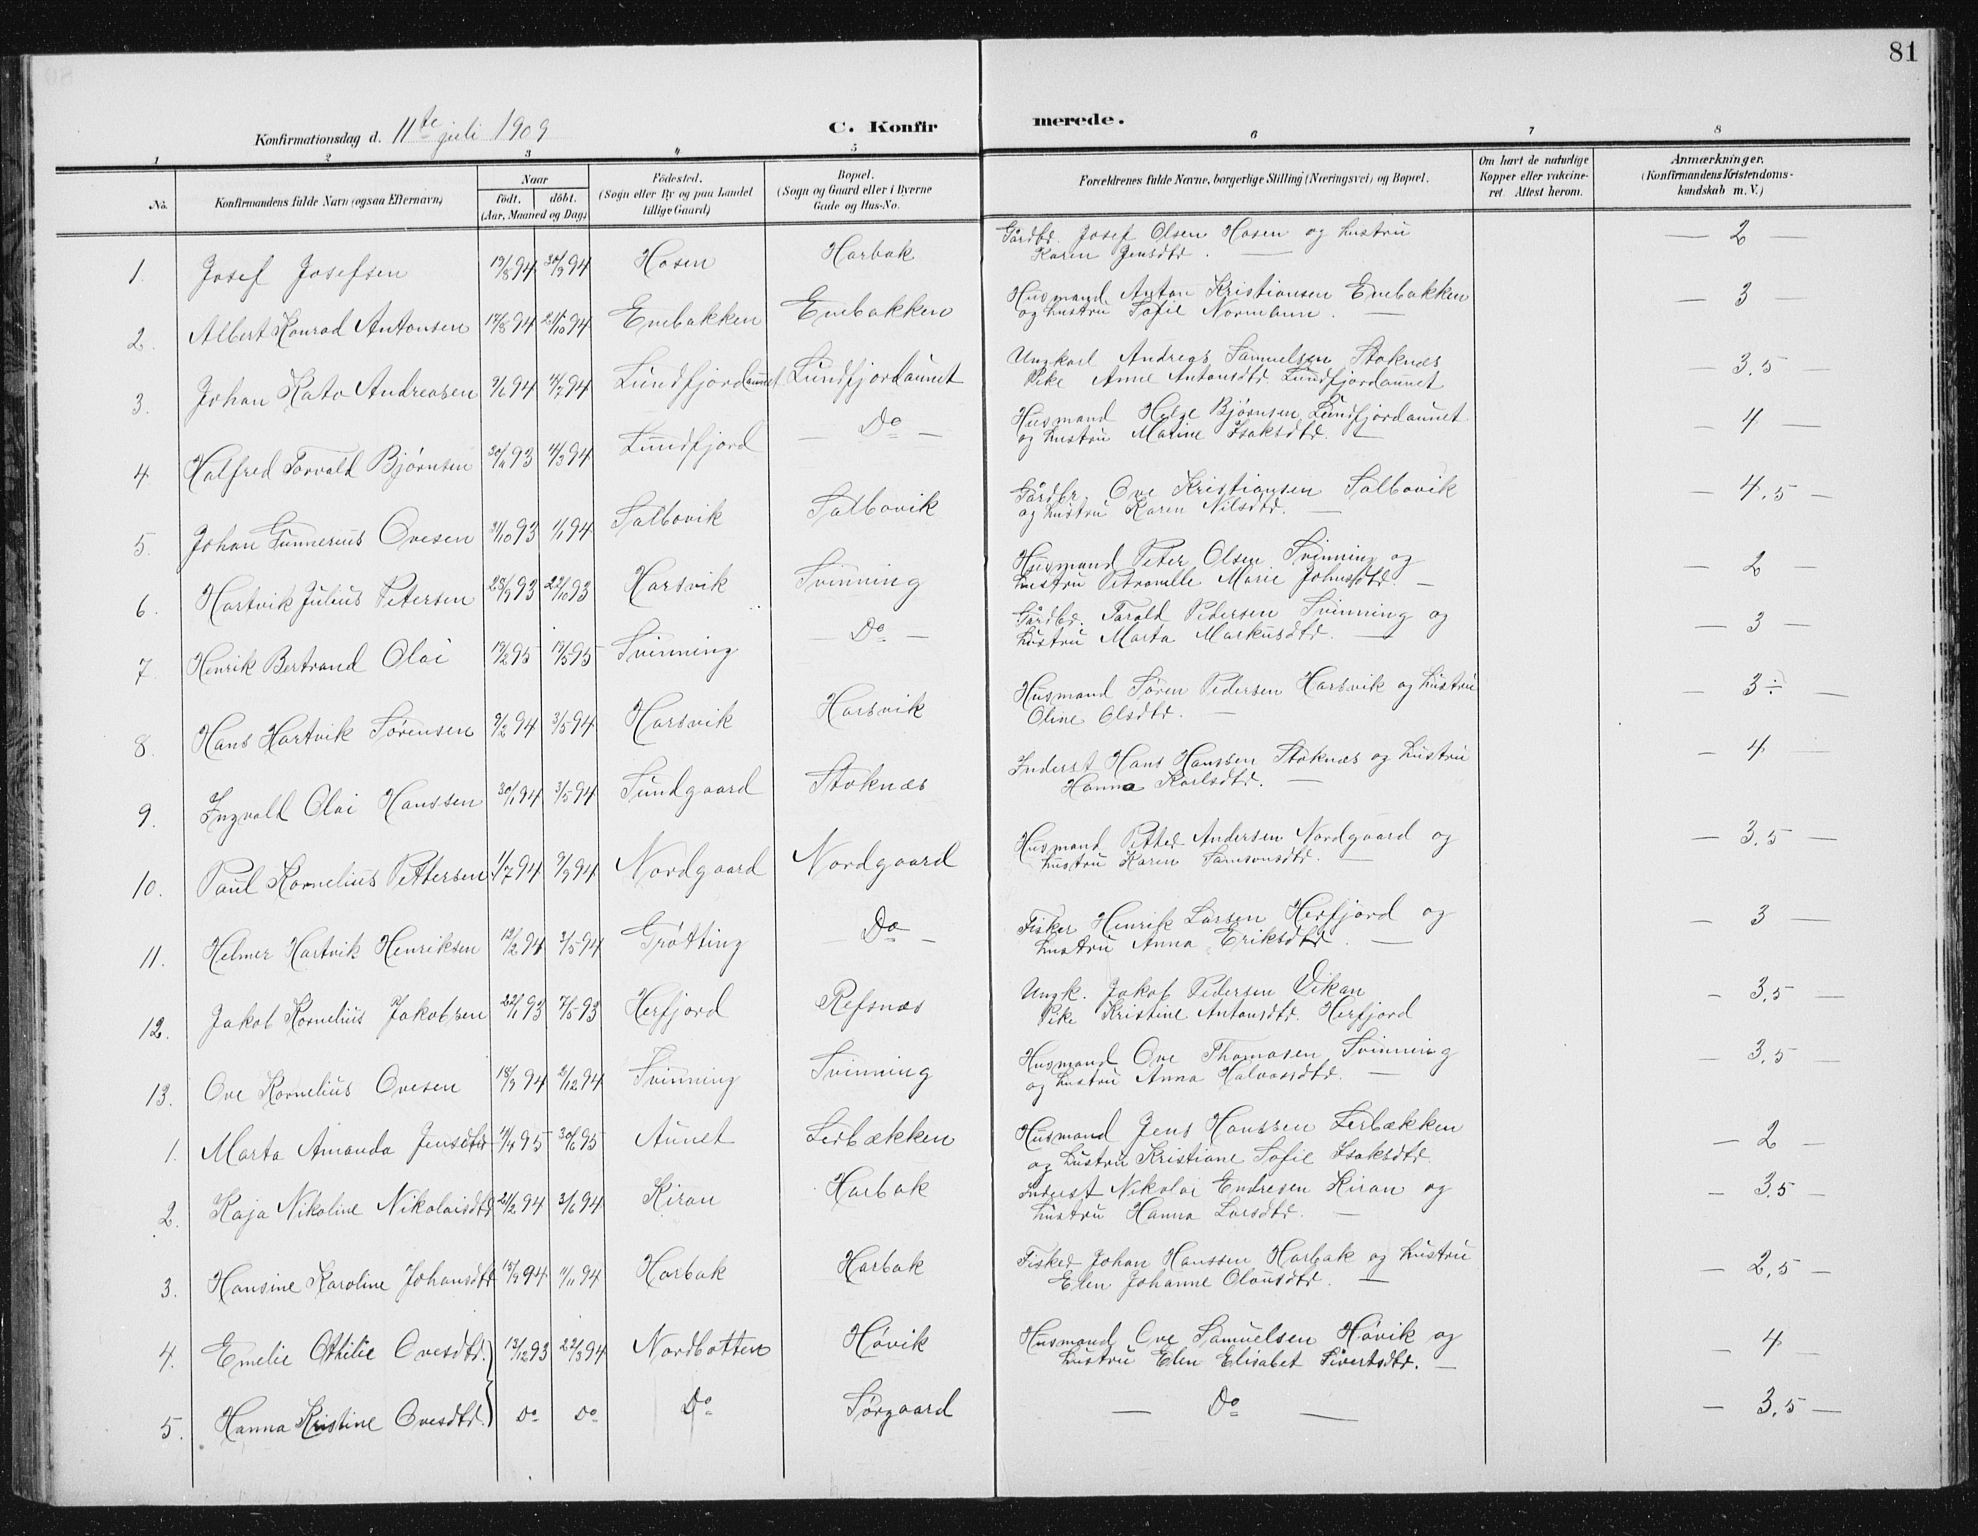 81
Konfirmationsdag d. 11te juli 1909
C. Konfirmerede.
1 2 3 4 5 6 7 8
No. Konfirmandens fulde Navn (ogsaa Efternavn) Naar født. døbt. (Aar, Maaned og Dag) Fødested. (Sogn eller By og paa Landet tillige Gaard) Bopæl. (Sogn og Gaard eller i Byerne Gade og Hus-No. Forældrenes fulde Navne, borgerlige Stilling (Næringsvei) og Bopæl. Om havt de naturlige Kopper eller vakcineret. Attest herom. Anmærkninger. (Konfirmandens Kristendomskundskab m. V.)
1. Josef Josefsen 19/8 94 30/9 94 Hosen Harbak Gårdbr. Josef Olsen Hosen og hustru — 2 —
Karen Jensdtr. —
2. Albert Konrad Antonsen 17/8 94 21/10 94 Enebakken Enebakken Husmand Anton Kristiansen Enebakken — 3 —
og hustru Sofie Normann. —
3. Johan Kato Andreasen 9/6 94 Lundfjordaunet Lundfjordaunet Ungkarl Andreas Samuelsen Stoknæs — 3.5 —
Pike Anne Antonsdtr. Lundfjordaunet
4. Halfred Torvald Bjørnsen 93 11/3 94 Lundfjord — Do — Husmand Helge Bjørnsen Lundfjordaunet — 4 —
og hustru Marine Isaksdtr. —
5. Johan Gunnerius Ovesen 31/10 93 1/1 94 Salbovik Salbovik Gårdbr. Ove Kristiansen Salbovik — 4.5 —
og hustru Karen Nilsdtr. —
6. Hartvik Julius Petersen 28/9 93 22/10 93 Harsvik Svinning Husmand Peter Olsen Svinning og — 2 —
hustru Petronelle Marie Johnsdtr —
7. Henrik Bertrand Olai 19/2 95 19/5 95 Svinning — Do — Gårdbr. Tarald Pedersen Svinning og — 3 —
hustru Marta Markusdtr. —
8. Hans Hartvik Sørensen 9/2 94 3/5 94 Harsvik Harsvik Husmand Søren Pedersen Harsvik og hustru — 3 ÷ —
Oline Olsdtr. —
9. Ingvald Olai Hanssen 30/1 94 3/5 94 Sundgaard Stoknæs Inderst Hans Hanssen Stoknæs og hustru — 4 —
Hanna Karlsdtr. —
10. Paul Kornelius Pettersen 1/7 94 9/9 94 Nordgaard Nordgaard Husmand Petter Andersen Nordgaard og — 3.5 —
hustru Karen Samsonsdtr. —
11. Helmer Hartvik Henriksen 12/2 94 3/5 94 Grøtting — Do — Fisker Henrik Larsen Herfjord og — 3 —
hustru Anna Eriksdtr. —
12. Jakob Kornelius Jakobsen 22/1 93 7/5 93 Herfjord Refsnæs Ungk. Jakob Pedersen Vikan — 3.5 —
Pike Kristine Antonsdtr. Herfjord
13. Ove Kornelius Ovesen 18/9 94 2/12 94 Svinning Svinning Husmand Ove Thomasen Svinning — 3.5 —
og hustru Anna Halvorsdtr. —
1. Marta Amanda Jensdtr 95 30/6 95 Aunet Lerbækken Husmand Jens Hanssen Lerbækken — 2 —
og hustru Kristiane Sofie Isaksdtr.
2. Kaja Nikoline Nikolaisdtr 21/2 94 3/6 94 Kiran Harbak Inderst Nikolai Endresen Kiran og — 3.5 —
hustru Hanna Larsdtr. —
3. Hansine Karoline Johansdtr 13/9 94 11/11 94 Harbak Harbak Fisker Johan Hanssen Harbak og hustru — 2.5 —
Elen Johanne Olausdtr. —
4. Emelie Othilie Ovesdtr. 13/12 93 22/3 94 Nordbotten Høvik Husmand Ove Samuelsen Høvik og — 4 —
hustru Elen Elisabet Sivertsdtr. —
5. Hanna Kristine Ovesdtr. Do Do Do Sørgaard — Do — — 3.5 —